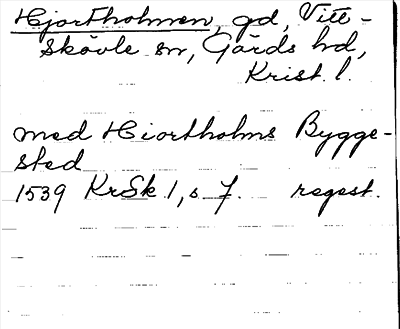 Hjortholmen, gd, Vitt-
skövle sn, Gärds hd,
Krist. l.
med Hiortholms Bygge-
sted
1539 KrSk 1, s 7. regest.